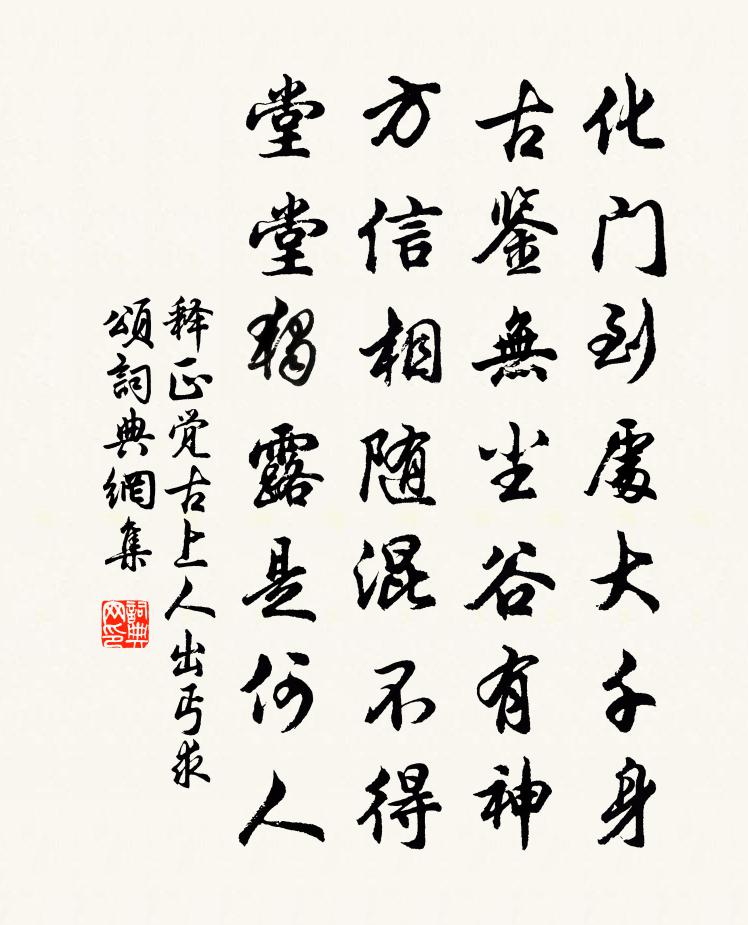 化门到處大千身
古鉴無尘谷有神
方信相随混不得
堂堂独露是何人
释正觉古上人出丐求
頌詞典網集
詞典网印